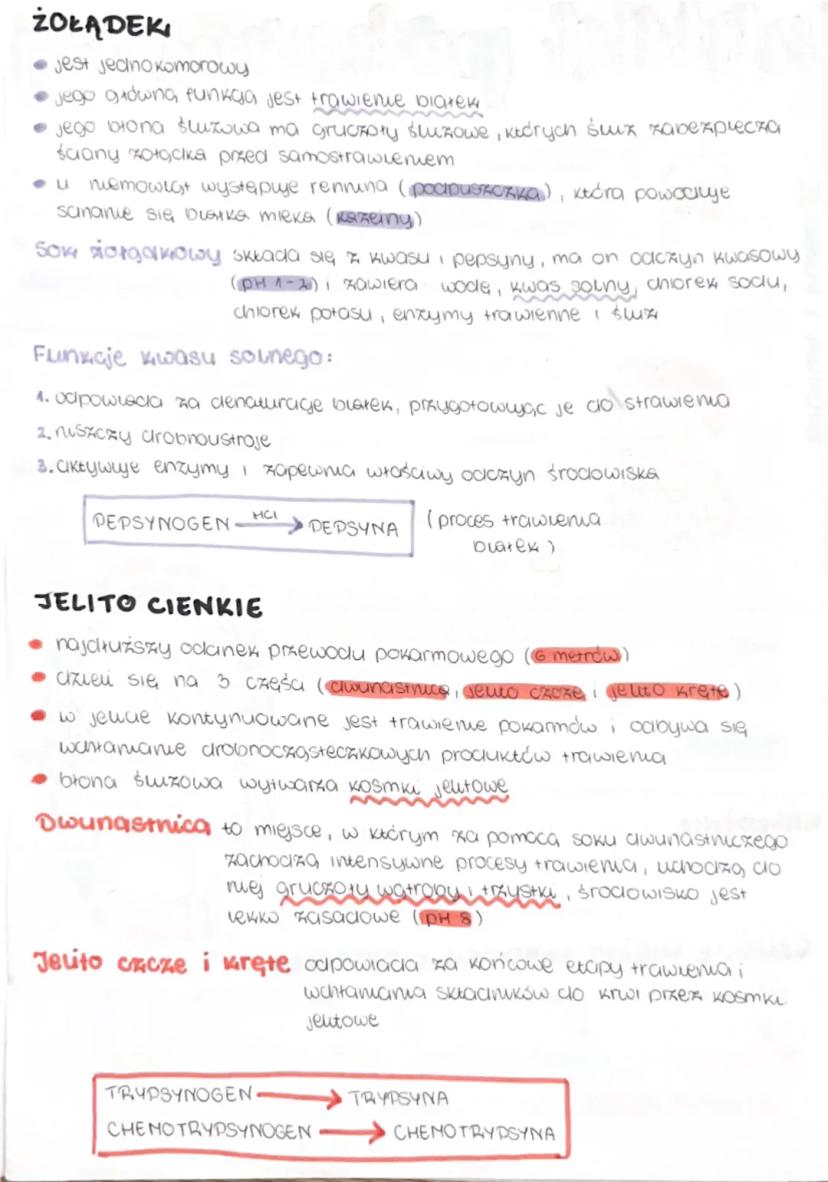 ŻOŁĄDEK
• jest jednokomorowy
• jego główną funkcją jest trawienie białek
• jego błona śluzowa ma gruczoły śluzowe, których śluz zabezpiecza
ściany żołądka przed samostrawieniem
• u niemowląt występuje rennina (podpuszczka), która powoduje
ścinanie się białka mleka (kazeiny)
Sok żołądkowy składa się z kwasu i pepsyny, ma on odczyn kwasowy
(pH 1-2) i zawiera wodę, kwas solny, chlorek sodu,
chlorek potasu, enzymy trawienne i śluz
Funkcje kwasu solnego:
1. odpowiada za denaturację białek, przygotowując je do strawienia
2. niszczy drobnoustroje
3. aktywuje enzymy i zapewnia właściwy odczyn środowiska
PEPSYNOGEN HCl → PEPSYNA (proces trawienia
białek)
JELITO CIENKIE
• najdłuższy odcinek przewodu pokarmowego (6 metrów)
• dzieli się na 3 części (dwunastnicę, jelito czcze i jelito kręte)
• w jelicie kontynuowane jest trawienie pokarmów i odbywa się
wchłanianie drobnocząsteczkowych produktów trawienia
• błona śluzowa wytwarza kosmki jelitowe
Dwunastnica to miejsce, w którym za pomocą soku dwunastniczego
zachodzą intensywne procesy trawienia, uchodzą do
niej gruczoły wątroby i trzustki, środowisko jest
lekko zasadowe (pH 8)
Jelito czcze i kręte odpowiada za końcowe etapy trawienia i
wchłaniania składników do krwi przez kosmki
jelitowe
TRYPSYNOGEN → TRYPSYNA
CHEMOTRYPSYNOGEN → CHEMOTRYPSYNA